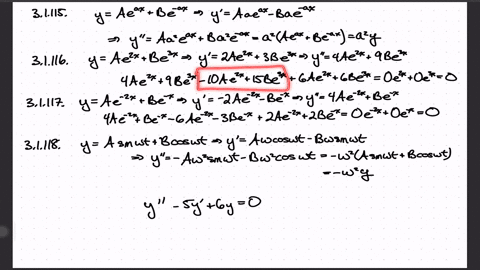 3.1.115. y=Ae^{ax}+Be^{-ax} ⇒ y'=Aae^{ax}-Bae^{-ax}
⇒ y''=Aa²e^{ax}+Ba²e^{-ax}=a²(Ae^{ax}+Be^{-ax})=a²y
3.1.116. y=Ae^{2x}+Be^{3x} ⇒ y'=2Ae^{2x}+3Be^{3x} ⇒ y''=4Ae^{2x}+9Be^{3x}
4Ae^{2x}+9Be^{3x}-10Ae^{2x}+15Be^{3x}+6Ae^{2x}+6Be^{3x}=0e^{2x}+0e^{3x}=0
3.1.117. y=Ae^{-2x}+Be^{-x} ⇒ y'=-2Ae^{-2x}-Be^{-x} ⇒ y''=4Ae^{-2x}+Be^{-x}
4Ae^{-2x}+Be^{-x}-6Ae^{-2x}-3Be^{-x}+2Ae^{-2x}+2Be^{-x}=0e^{-2x}+0e^{-x}=0
3.1.118. y=Asinωt+Bcosωt ⇒ y'=Aωcosωt-Bωsinωt
⇒ y''=-Aω²sinωt-Bω²cosωt=-ω²(Asinωt+Bcosωt)
=-ω²y
y''-5y'+6y=0